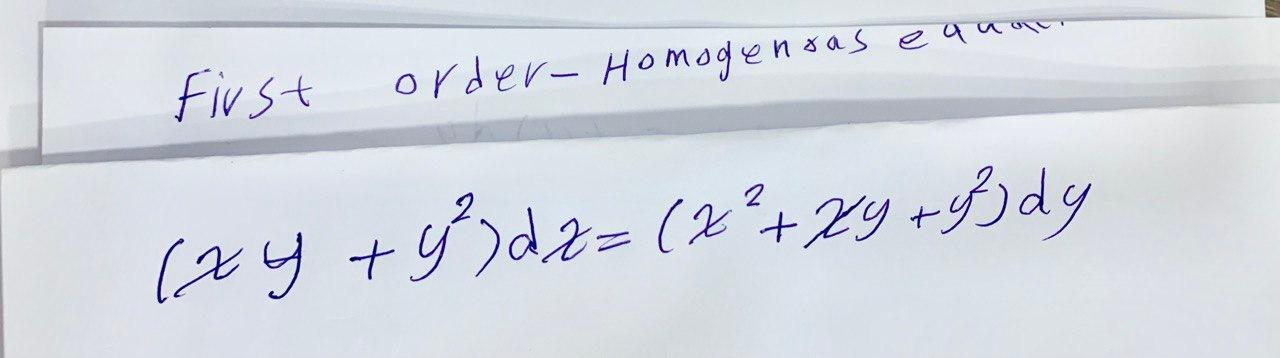 First order- Homogenoas
(xy + y²)dx = (x² + xy + y²)dy